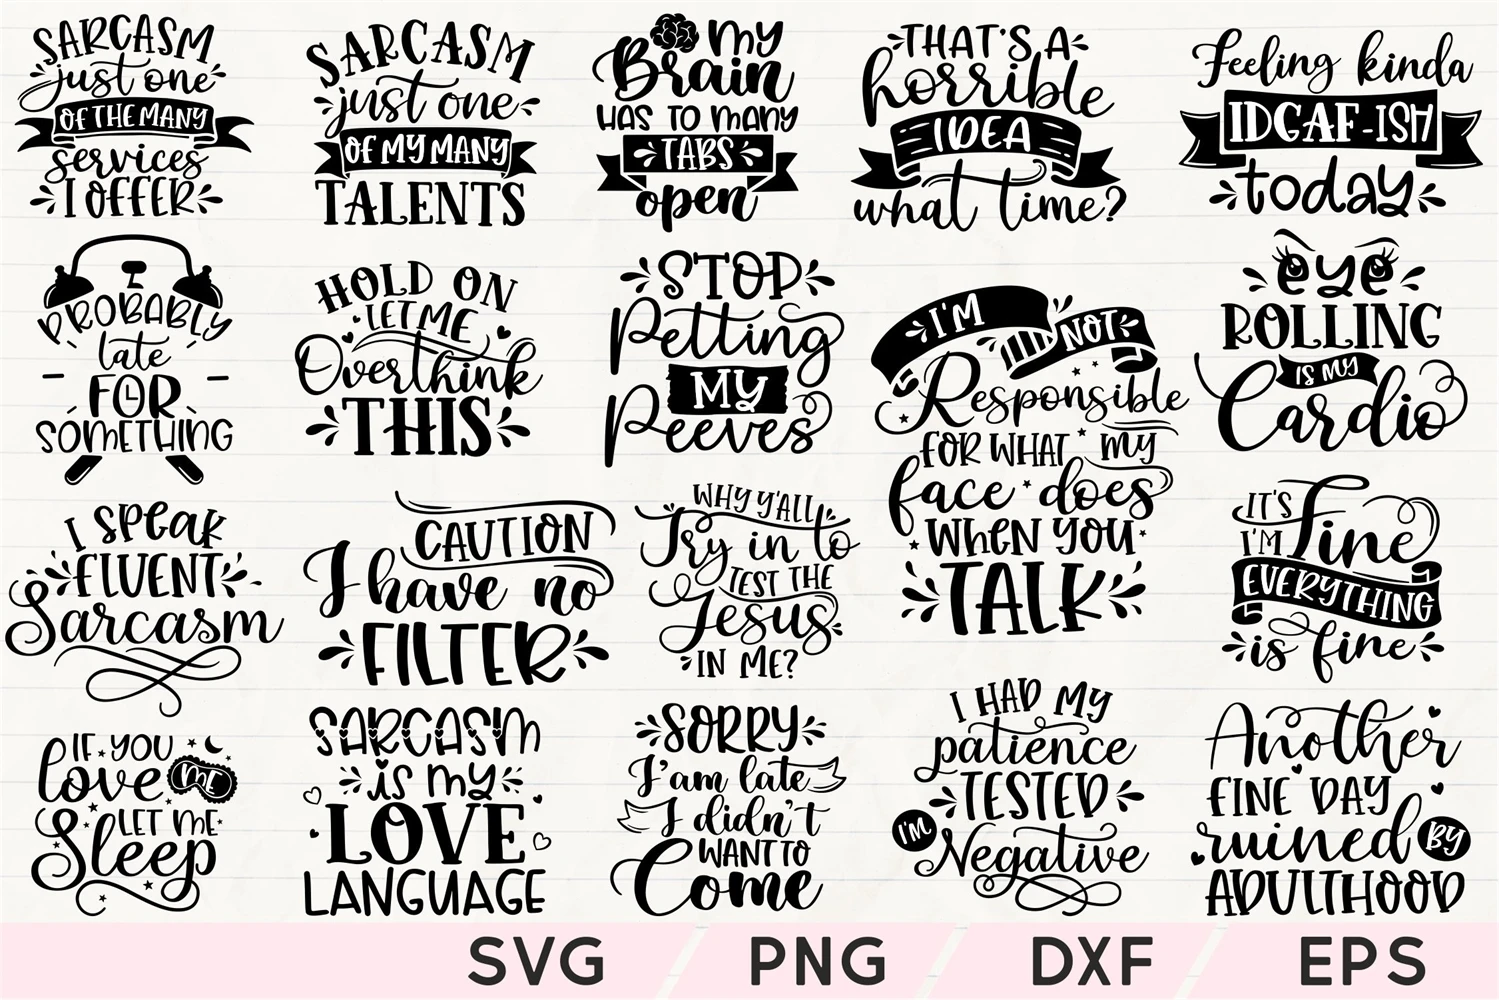 SARCASM
just one
OF THE MANY
services
I OFFER
SARCASM
just one
OF MY MANY
TALENTS
my
Brain
HAS TO many
TABS
open
THAT'S A
horrible
IDEA
what time?
Feeling kinda
IDGAF-ISH
today
PROBABLY
late
FOR
SOmETHING
HOLD ON
LET ME
Overthink
THIS
STOP
Petting
MY
Peeves
I'M
NOT
Responsible
FOR WHAT my
face does
WHEN YOU
TALK
eye
ROLLING
IS MY
Cardio
I SPEAK
FLUENT
Sarcasm
CAUTION
I have no
FILTER
WHY Y'ALL
Try in to
TEST THE
Jesus
IN ME?
IT'S
Fine
I'M
EVERYTHING
is fine
IF YOU
love ME
LET ME
Sleep
SARCASM
is my
LOVE
LANGUAGE
SORRY
I'am late
I didn't
WANT TO
Come
I HAD MY
patience
TESTED
I'M
Negative
Another
FINE DAY
ruined BY
ADULTHOOD
SVG / PNG / DXF / EPS